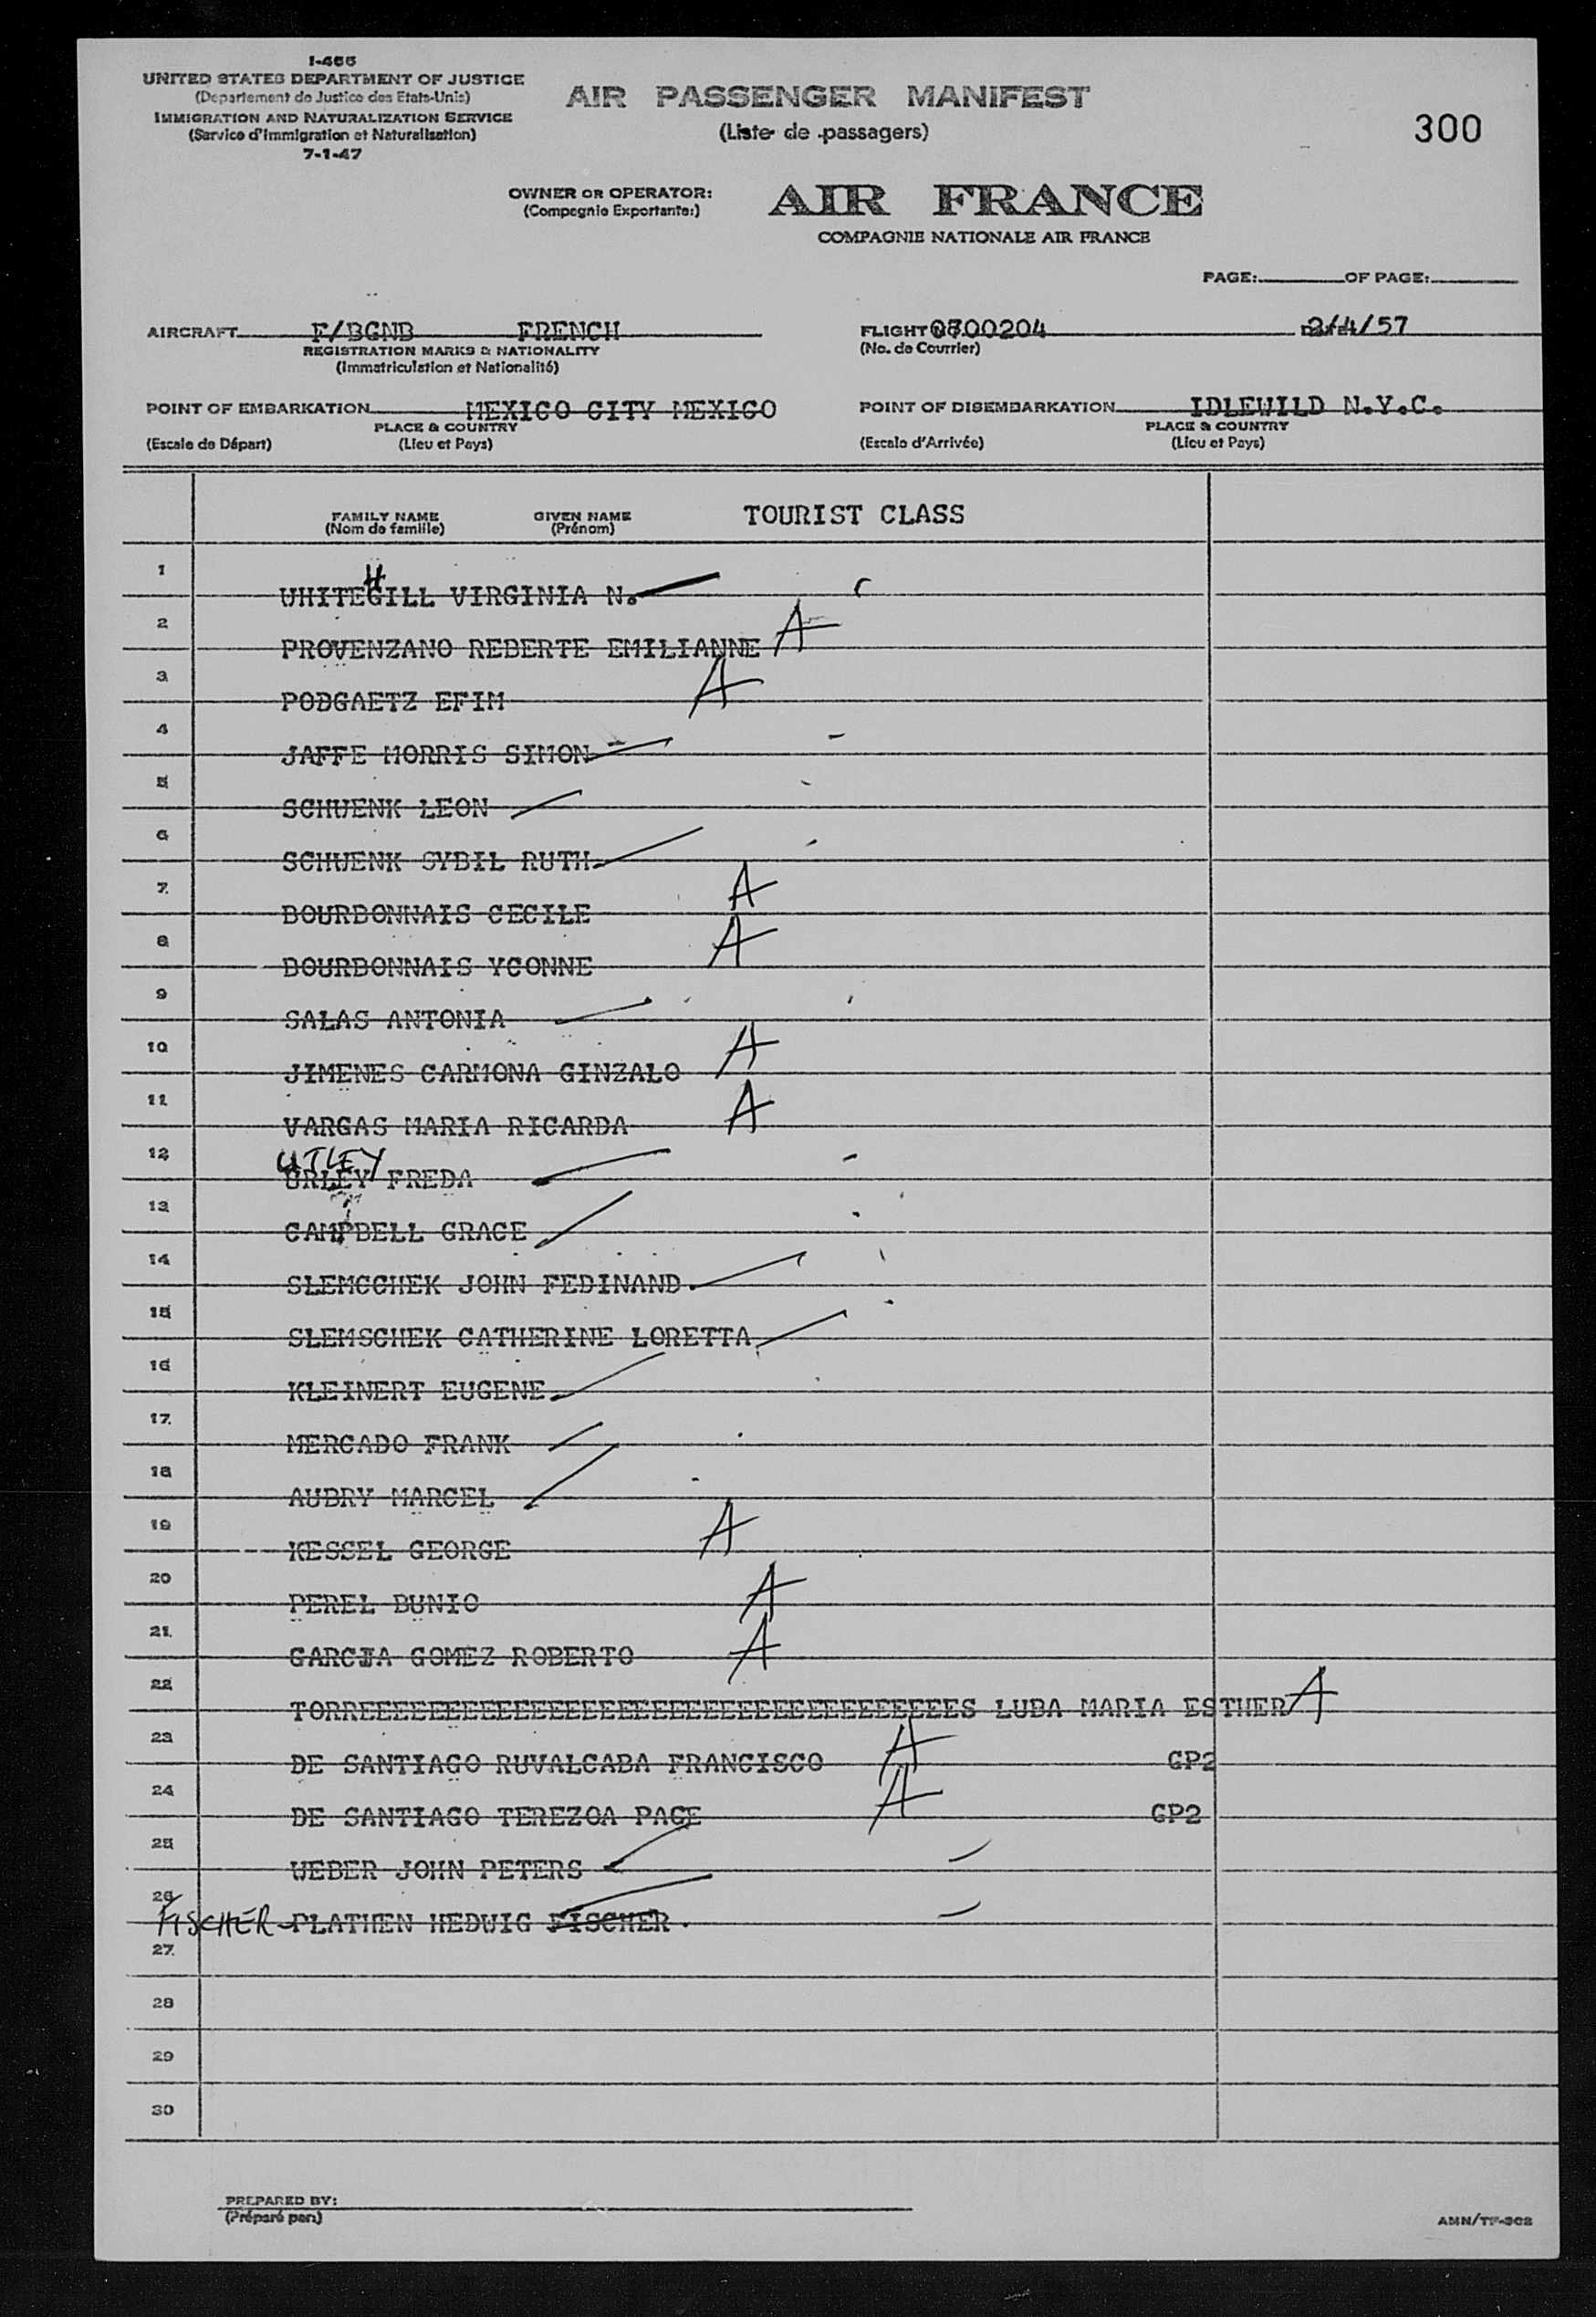 I-466
UNITED STATES DEPARTMENT OF JUSTICE
(Departement de Justice des Etats-Unis)
IMMIGRATION AND NATURALIZATION SERVICE
(Service d'Immigration et Naturalisation)
7-1-47
AIR PASSENGER MANIFEST
(Liste de passagers)
300
OWNER OR OPERATOR:
(Compagnie Exportante:)
AIR FRANCE
COMPAGNIE NATIONALE AIR FRANCE
PAGE: OF PAGE:
AIRCRAFT F/BGNB FRENCH
REGISTRATION MARKS & NATIONALITY
(Immatriculation et Nationalité)
FLIGHT 0700204 2/4/57
(No. de Courrier)
POINT OF EMBARKATION MEXICO CITY MEXICO
PLACE & COUNTRY
(Escale de Départ) (Lieu et Pays)
POINT OF DISEMBARKATION IDLEWILD N.Y.C.
PLACE & COUNTRY
(Escale d'Arrivée) (Lieu et Pays)
FAMILY NAME GIVEN NAME TOURIST CLASS
(Nom de famille) (Prénom)
H
1 WHITEGILL VIRGINIA N.
2 PROVENZANO REBERTE EMILIANNE A
3 PODGAETZ EFIM A
4 JAFFE MORRIS SIMON
5 SCHWENK LEON
6 SCHWENK SYBIL RUTH
7 BOURBONNAIS CECILE A
8 BOURBONNAIS YCONNE A
9 SALAS ANTONIA
10 JIMENES CARMONA GINZALO A
11 VARGAS MARIA RICARDA A
UTLEY
12 URLEY FREDA
13 CAMPBELL GRACE
14 SLEMCCHEK JOHN FEDINAND
15 SLEMSCHEK CATHERINE LORETTA
16 KLEINERT EUGENE
17 MERCADO FRANK
18 AUBRY MARCEL
19 KESSEL GEORGE A
20 PEREL BUNIO A
21 GARCIA GOMEZ ROBERTO A
22 TORREEEEEEEEEEEEEEEEEEEEEEEEEEEEEEEEEEES LUBA MARIA ESTHER A
23 DE SANTIAGO RUVALCABA FRANCISCO A GP2
24 DE SANTIAGO TEREZOA PACE A GP2
25 WEBER JOHN PETERS
26 FISCHER PLATHEN HEDWIG FISCHER.
27
28
29
30
PREPARED BY:
(Préparé par:)
AMN/TF-302